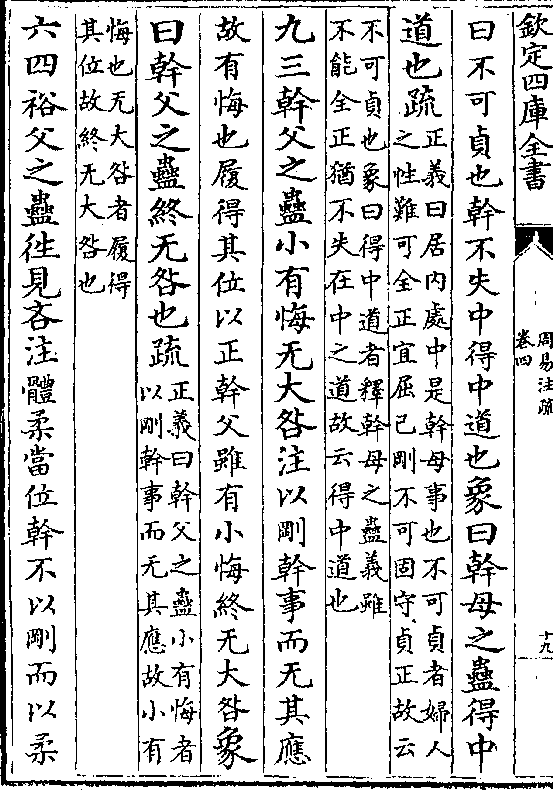 欽定四庫全書
周易注疏
卷四
十九
曰不可貞也幹不失中得中道也象曰幹母之蠱得中
道也疏
正義曰居内處中是幹母事也不可貞者婦人
之性難可全正宜屈已剛不可固守貞正故云
不可貞也象曰得中道者釋幹母之蠱義雖
不能全正猶不失在中之道故云得中道也
九三幹父之蠱小有悔无大咎注以剛幹事而无其應
故有悔也履得其位以正幹父雖有小悔終无大咎象
曰幹父之蠱終无咎也疏
正義曰幹父之蠱小有悔者
以剛幹事而无其應故小有
悔也无大咎者履得
其位故終无大咎也
六四裕父之蠱徃見吝注體柔當位幹不以剛而以柔